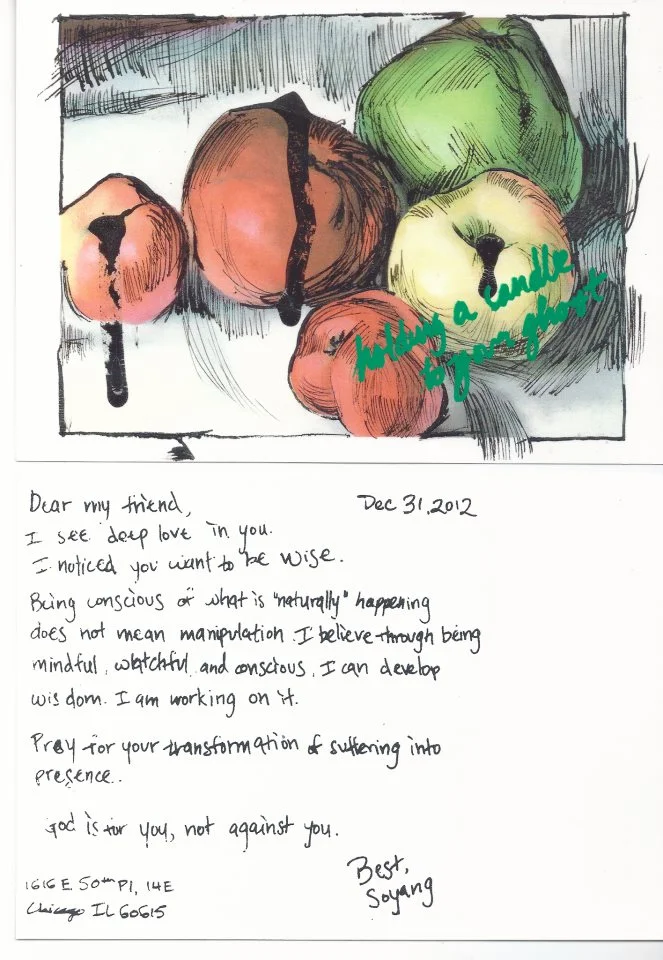 holding a candle
to your ghost
Dear my friend,
Dec 31, 2012
I see deep love in you.
I noticed you want to be wise.
Being conscious of what is "naturally" happening
does not mean manipulation. I believe through being
mindful, watchful, and conscious, I can develop
wisdom. I am working on it.
Pray for your transformation of suffering into
presence..
God is for you, not against you.
Best,
Soyang
1616 E. 50th Pl, 14E
Chicago IL 60615